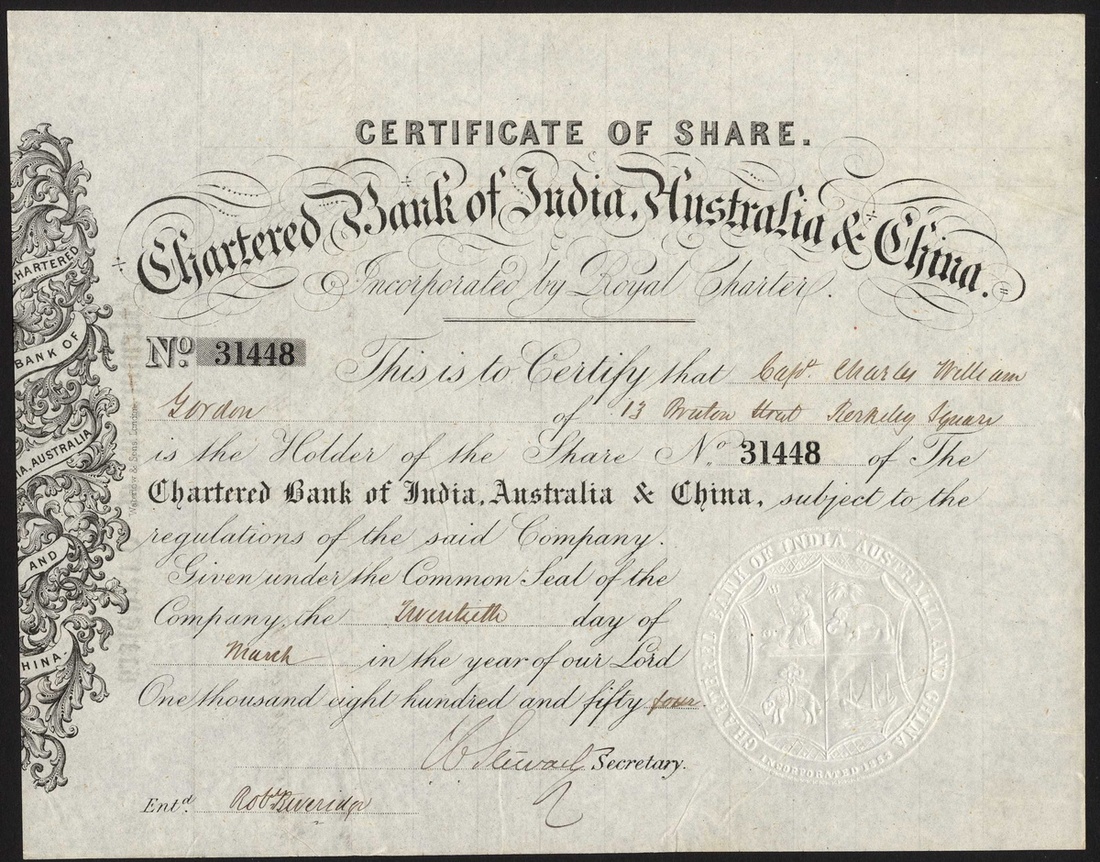 CERTIFICATE OF SHARE.
Chartered Bank of India, Australia & China.
Incorporated by Royal Charter.
No. 31448
This is to Certify that Capt. Charles William
Gordon of 13 Bruton Street Berkeley Square
is the Holder of the Share No. 31448 of The
Chartered Bank of India, Australia & China, subject to the
regulations of the said Company.
Given under the Common Seal of the
Company, the Twentieth day of
March in the year of our Lord
One thousand eight hundred and fifty four.
Secretary.
Entd. Robt. Beveridge
HARTERED
BANK OF
IA, AUSTRALIA
AND
HINA.
Waterlow & Sons, London.
CHARTERED BANK OF INDIA AUSTRALIA AND CHINA
INCORPORATED 1853